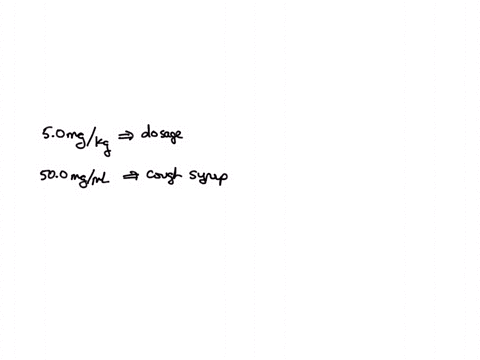 5.0mg/kg ⇒ dosage
50.0 mg/mL ⇒ cough syrup